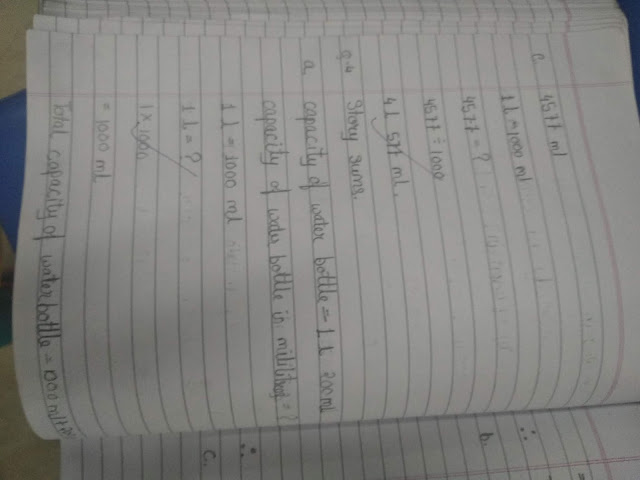 c. 4577 ml
1 L = 1000 ml
4577 = ?
4577 ÷ 1000
4 L 577 ml.
Q.4 Story sums.
a. capacity of water bottle = 1 L 200 ml
capacity of water bottle in mililitres = ?
1 L = 1000 ml
1 L = ?
1 x 1000
= 1000 ml
Total capacity of water bottle = 1000 ml +
∴
b.
∴
c.